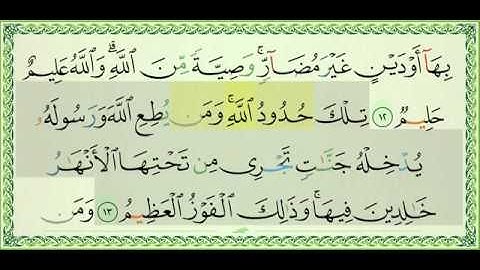 بِهَآ أَوْ دَيْنٍ غَيْرَ مُضَآرٍّۚ وَصِيَّةً مِّنَ ٱللَّهِۗ وَٱللَّهُ عَلِيمٌ
حَلِيمٌ ١٢ تِلْكَ حُدُودُ ٱللَّهِۚ وَمَن يُطِعِ ٱللَّهَ وَرَسُولَهُۥ
يُدْخِلْهُ جَنَّـٰتٍ تَجْرِى مِن تَحْتِهَا ٱلْأَنْهَـٰرُ
خَـٰلِدِينَ فِيهَاۚ وَذَٰلِكَ ٱلْفَوْزُ ٱلْعَظِيمُ ١٣ وَمَن